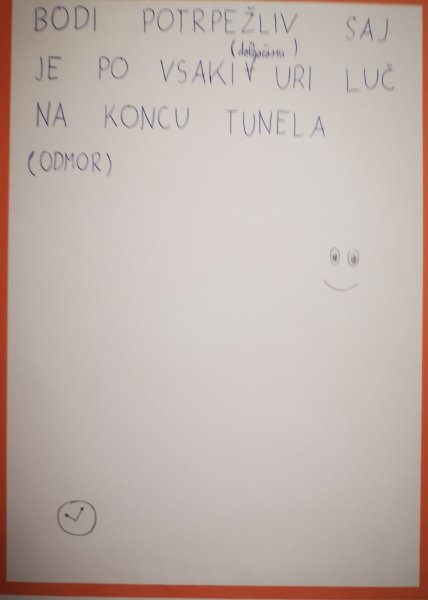 BODI POTRPEŽLIV SAJ
(dolgočasni)
JE PO VSAKI URI LUČ
NA KONCU TUNELA
(ODMOR)